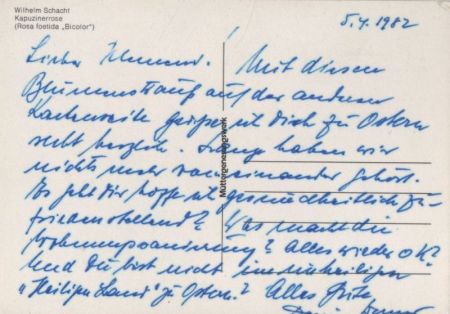 Wilhelm Schacht
Kapuzinerrose
(Rosa foetida „Bicolor")
5.4.1982
Lieber
Mit diesem
Blumenstrauß auf der anderen
Kartenseite grüße ich Dich zu Ostern
recht herzlich. Lange haben wir
nichts mehr voneinander gehört.
Es geht Dir hoffentlich gesundheitlich zu-
friedenstellend? Was macht die
Wohnungssanierung? Alles wieder o.k?
Und Du bist nicht im unheiligen
"Heiligen Land" zu Ostern? Alles Gute,
Müttergenesungswerk